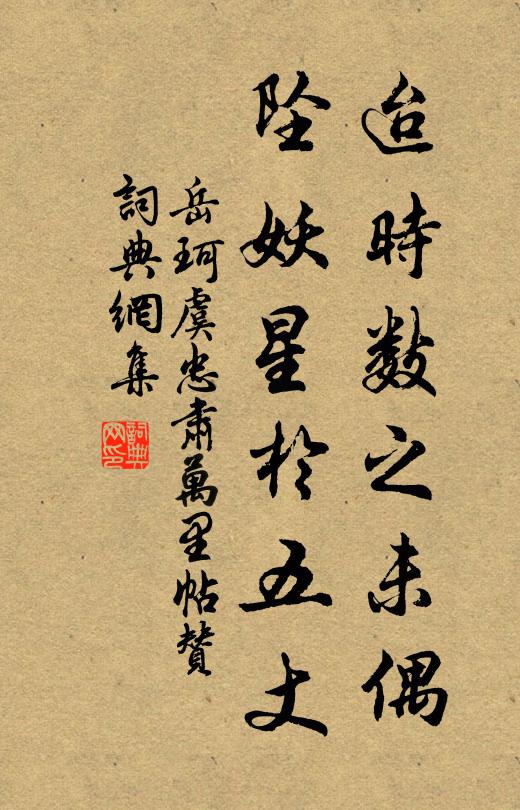 迨時數之未偶
墜妖星於五丈
岳珂虞忠肅萬里帖贊
詞典網集
詞典
网印